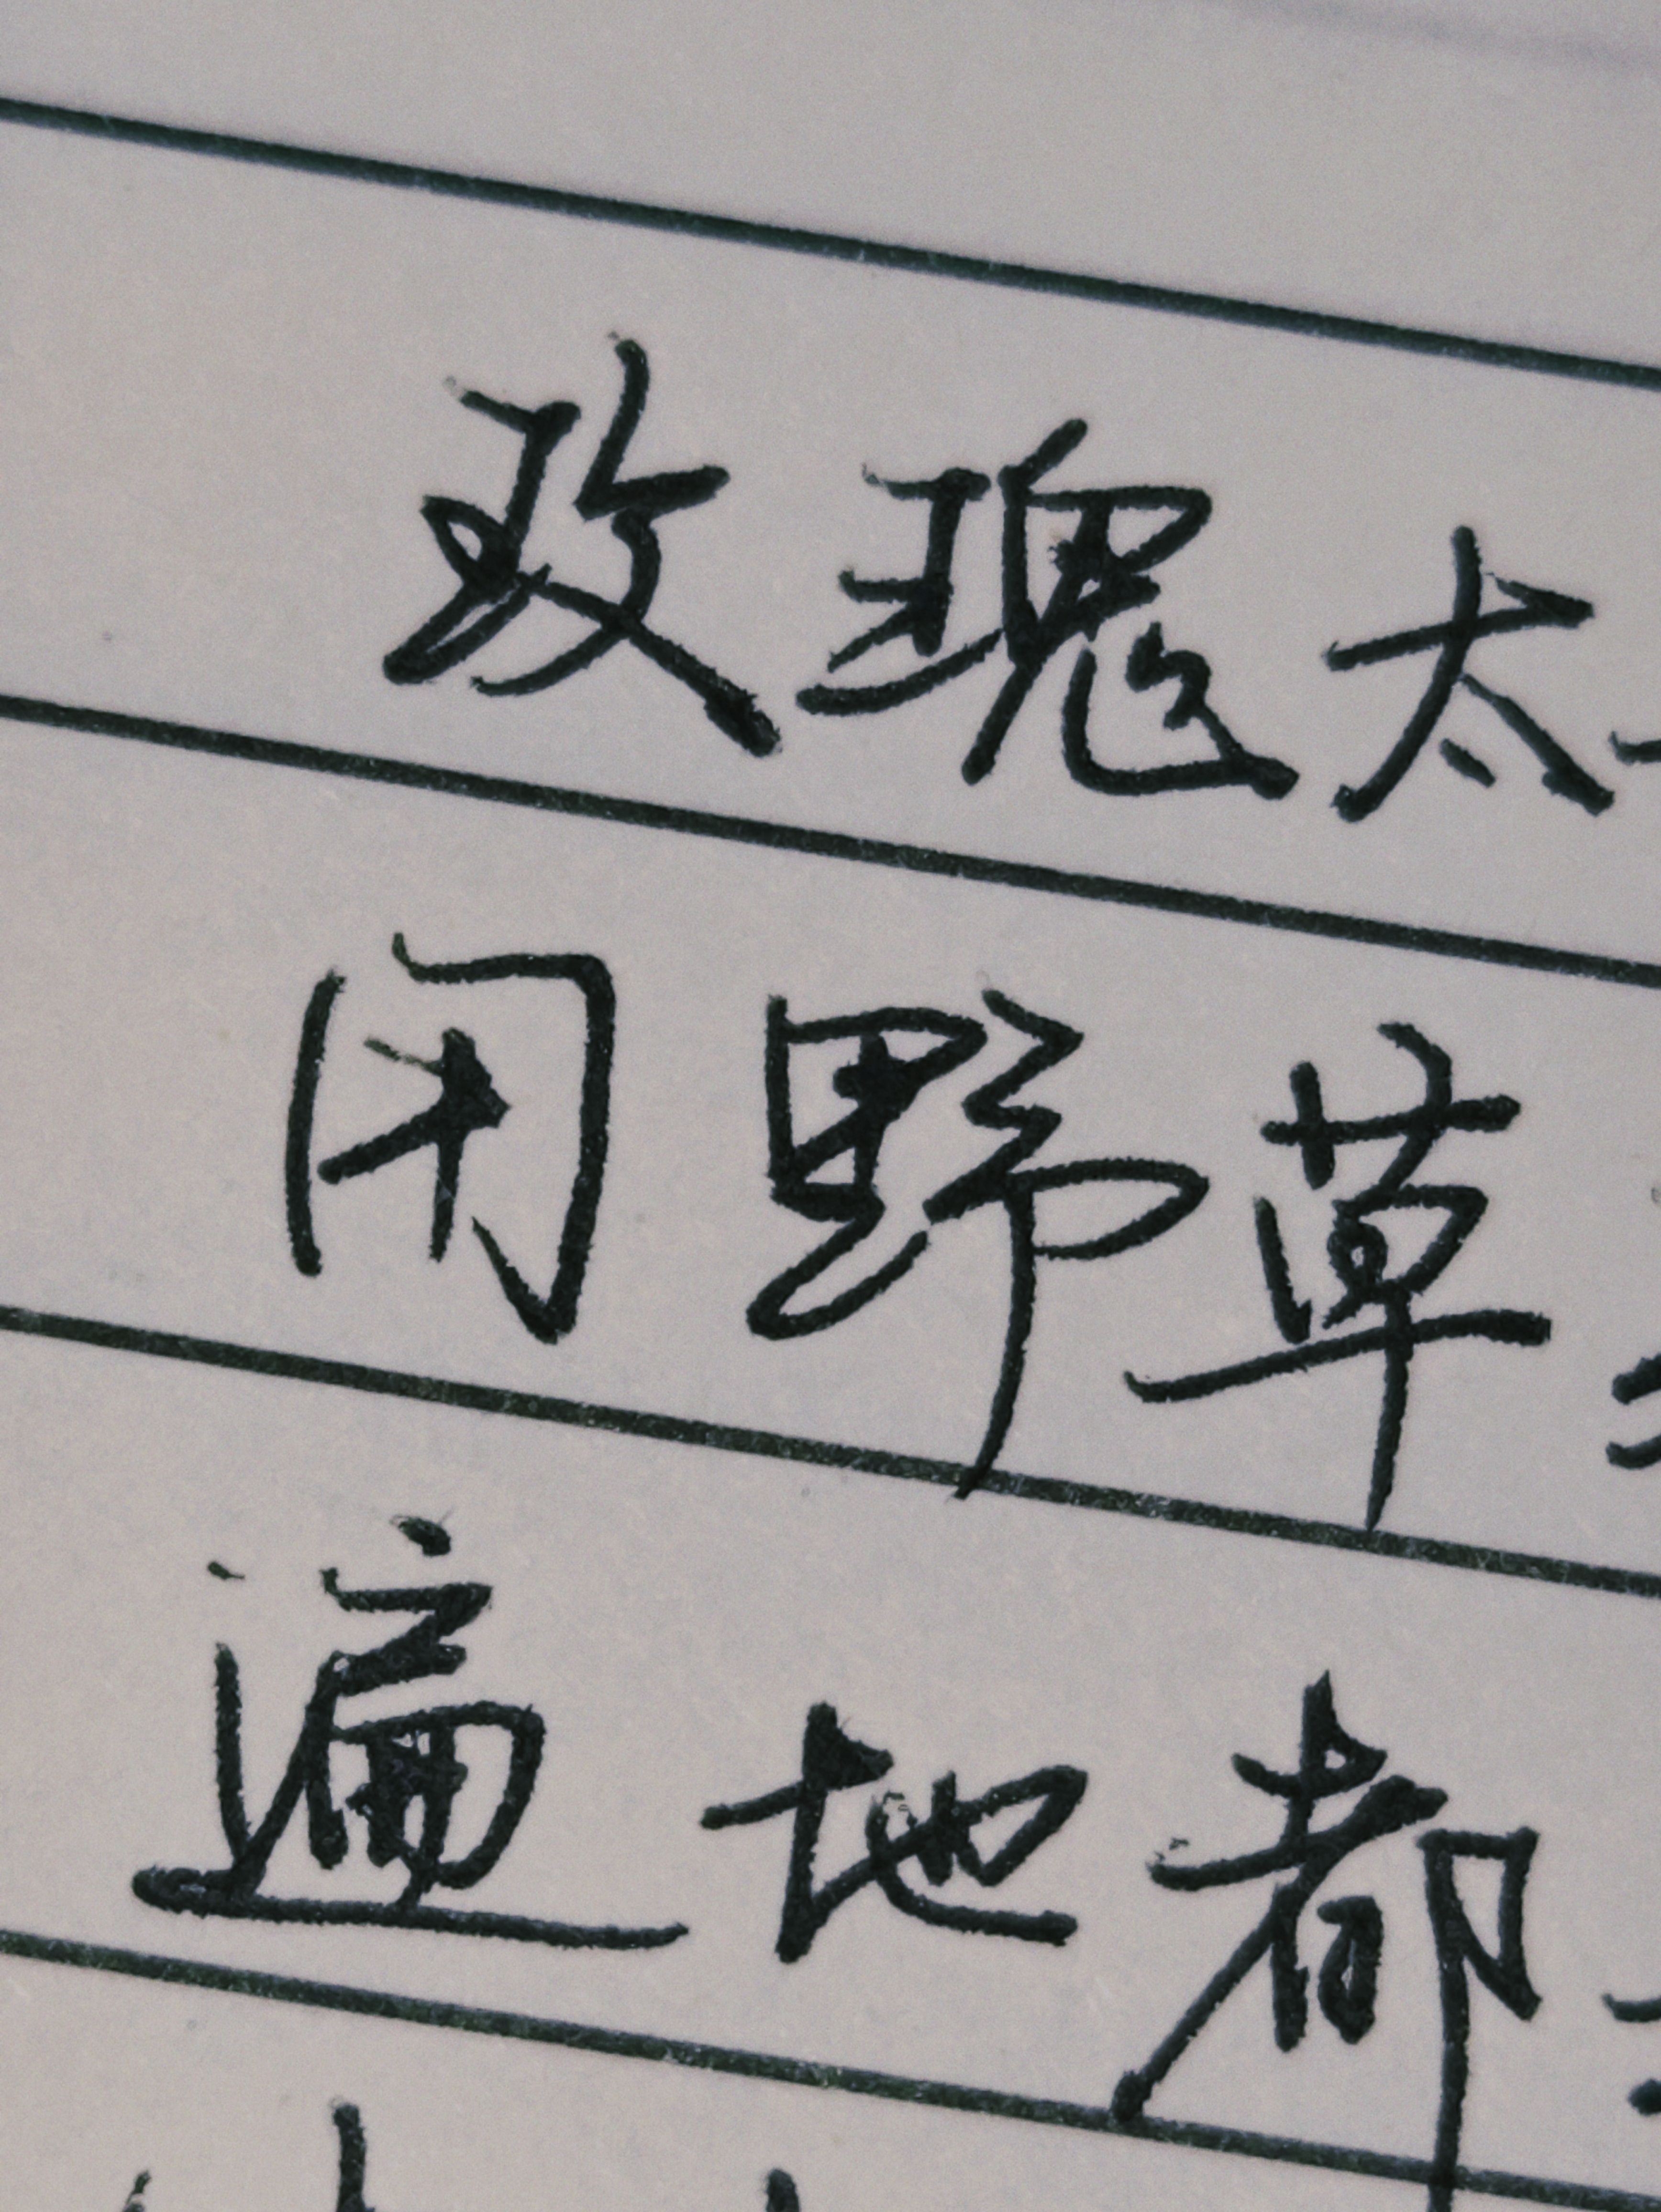 玫瑰太
用野草
遍地都